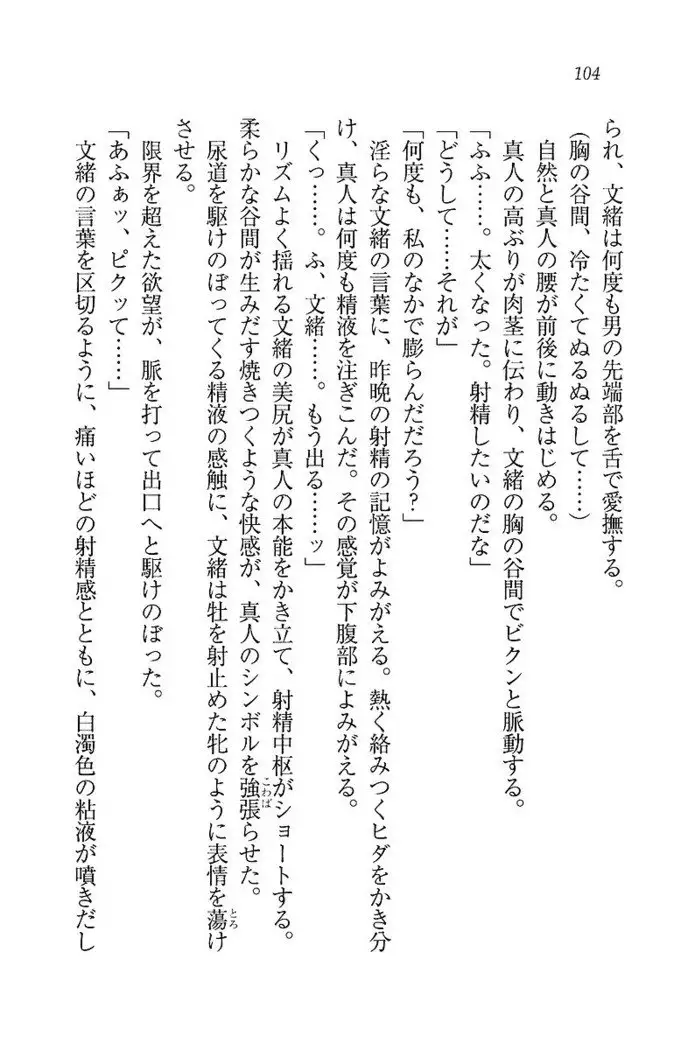 104
られ、文緒は何度も男の先端部を舌で愛撫する。
(胸の谷間、冷たくてぬるぬるして……)
自然と真人の腰が前後に動きはじめる。
真人の高ぶりが肉茎に伝わり、文緒の胸の谷間でビクンと脈動する。
「ふふ……。太くなった。射精したいのだな」
「どうして……それが」
「何度も、私のなかで膨らんだだろう？」
淫らな文緒の言葉に、昨晩の射精の記憶がよみがえる。熱く絡みつくヒダをかき分
け、真人は何度も精液を注ぎこんだ。その感覚が下腹部によみがえる。
「くっ……。ふ、文緒……。もう出る……ッ」
リズムよく揺れる文緒の美尻が真人の本能をかき立て、射精中枢がショートする。
柔らかな谷間が生みだす焼きつくような快感が、真人のシンボルを強張らせた。
こわば
尿道を駆けのぼってくる精液の感触に、文緒は牡を射止めた牝のように表情を蕩け
とろ
させる。
限界を超えた欲望が、脈を打って出口へと駆けのぼった。
「あふぁッ、ピクッて……」
文緒の言葉を区切るように、痛いほどの射精感とともに、白濁色の粘液が噴きだし